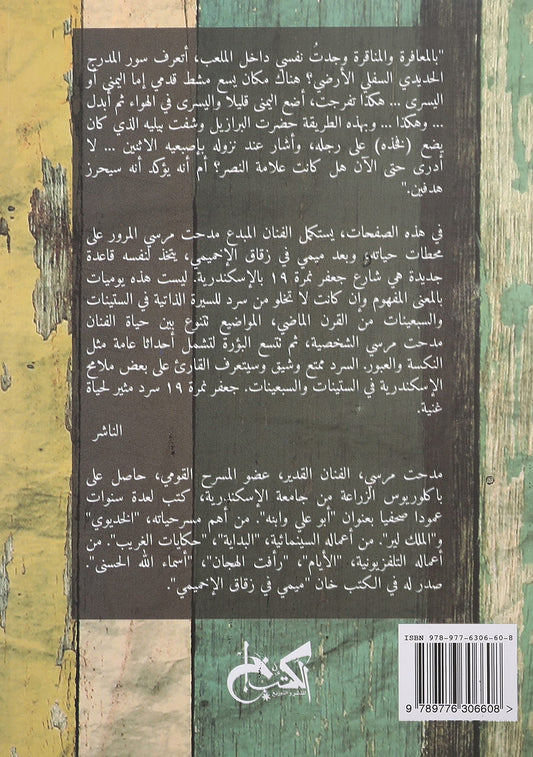 "بالمعافرة والمناقرة وجدتُ نفسي داخل الملعب، أتعرف سور المدرج
الحديدي السفلي الأرضي؟ هناك مكان يسع مشط قدمي إما اليمني أو
اليسرى ... هكذا تفرجت، أضع اليمنى قليلا واليسرى في الهواء ثم أبدل
... وهكذا ... وبهذه الطريقة حضرت البرازيل وشفت بيليه الذي كان
يضع (فخذه) على رجله، وأشار عند نزوله بإصبعيه الاثنين ... لا
أدرى حتى الآن هل كانت علامة النصر؟ أم أنه يؤكد أنه سيحرز
هدفين."
في هذه الصفحات، يستكمل الفنان المبدع مدحت مرسي المرور على
محطات حياته، وبعد ميمي في زقاق الإخميمي، يتخذ لنفسه قاعدة
جديدة هي شارع جعفر نمرة ١٩ بالإسكندرية. ليست هذه يوميات
بالمعنى المفهوم وإن كانت لا تخلو من سرد للسيرة الذاتية في الستينات
والسبعينات من القرن الماضي، المواضيع تتنوع بين حياة الفنان
مدحت مرسي الشخصية، ثم تتسع البؤرة لتشمل أحداثا عامة مثل
النكسة والعبور. السرد ممتع وشيق وسيتعرف القارئ على بعض ملامح
الإسكندرية في الستينات والسبعينات. جعفر نمرة ١٩ سرد مثير لحياة
غنية.
الناشر
مدحت مرسي، الفنان القدير، عضو المسرح القومي، حاصل على
باكلوريوس الزراعة من جامعة الإسكندرية، كتب لعدة سنوات
عمودا صحفيا بعنوان "أبو علي وابنه". من أهم مسرحياته، "الخديوي"
و"الملك لير". من أعماله السينمائية، "البداية"، "حكايات الغريب". من
أعماله التلفزيونية، "الأيام"، "رأفت الهجان"، "أسماء الله الحسنى".
صدر له في الكتب خان "ميمي في زقاق الإخميمي".
الكتب خان
للنشر والتوزيع
ISBN 978-977-6306-60-8
9 789776 306608 >